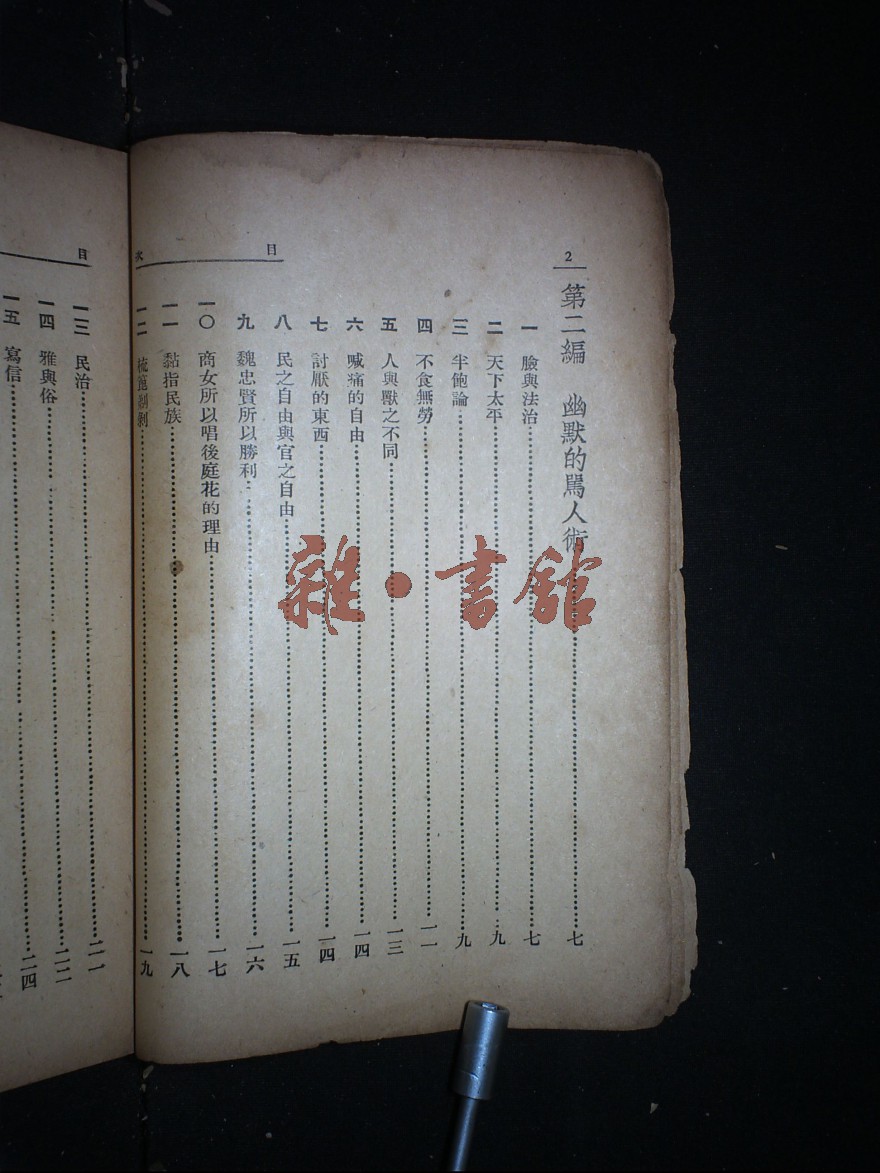 2
目次
第二編 幽默的罵人術……七
一 臉與法治……七
二 天下太平……九
三 半飽論……九
四 不食無勞……一一
五 人與獸之不同……一三
六 喊痛的自由……一四
七 討厭的東西……一四
八 民之自由與官之自由……一五
九 魏忠賢所以勝利……一六
一〇 商女所以唱後庭花的理由……一七
一一 黏指民族……一八
一二 梳篦剃剝……一九
目
一三 民治……二一
一四 雅與俗……二二
一五 寫信……二四
雜·書館